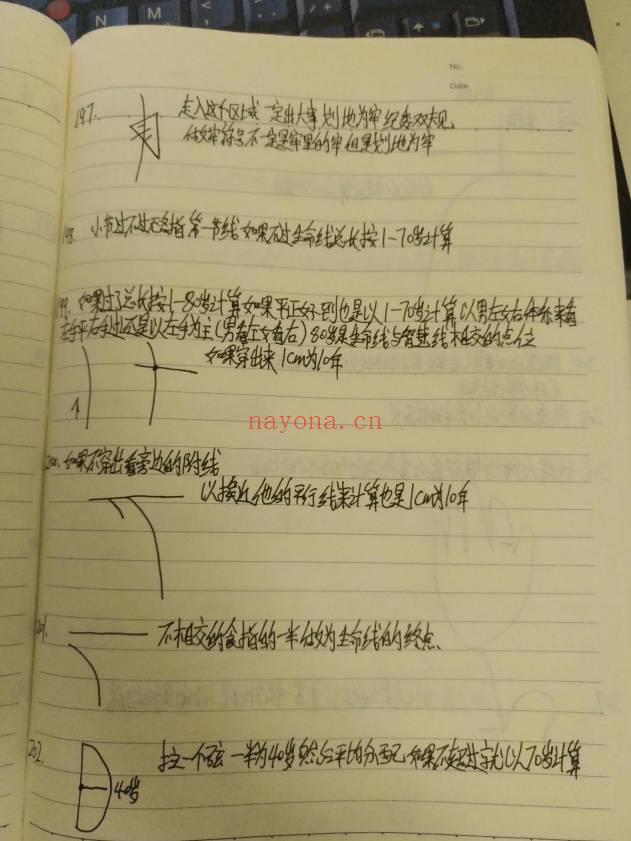 N
M
No.
Date
197.
走入这个区域一定出大事 划地为牢 纪委双规
做牢符号不一定是牢里的牢 但是划地为牢
198. 小节过不过无名指第一节线 如果不过生命线总长按1-70岁计算
199. 如果过了总长按1-80岁计算 如果平正好到也是以1-70岁计算 以男左女右体系来看
左手平右手过还是以左手为主(男看左女看右) 80岁是生命线与智慧线相交的点位
如果穿出来1cm为10年
nayona.cn
200. 如果不穿出看旁边的附线
以接近他的平行线来计算也是1cm为10年
201.
不相交的食指的一半做为生命线的终点
202.
拉一个弦一半为40岁 然后平均分配 如果不超过就以70岁计算
40岁